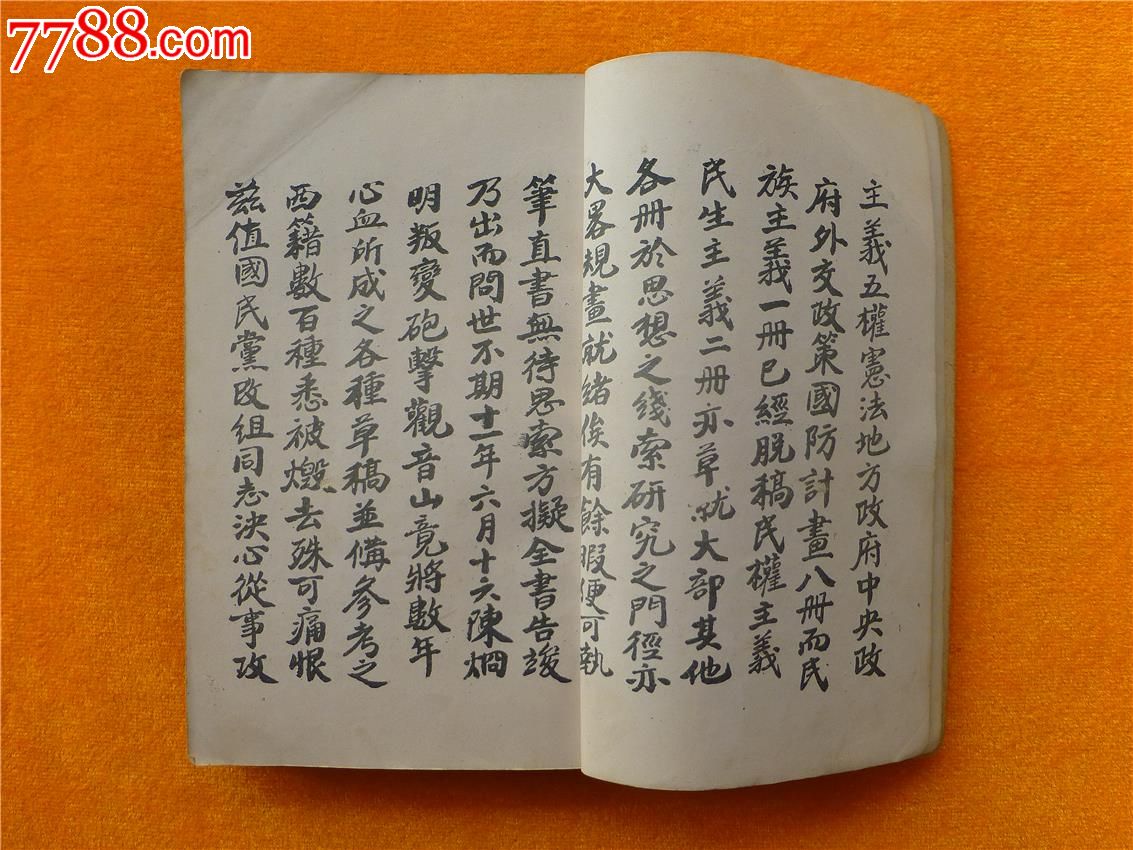 7788.com
主義五權憲法地方政府中央政
府外交政策國防計畫八册而民
族主義一册已經脱稿民權主義
民生主義二册亦草就大部其他
各册於思想之綫索研究之門徑亦
大畧規畫就緒俟有餘暇便可執
筆直書無待思索方擬全書告竣
乃出而問世不期十一年六月十六陳烱
明叛變砲擊觀音山竟將數年
心血所成之各種草稿並備參考之
西籍數百種悉被燬去殊可痛恨
兹值國民黨改組同志決心從事攻